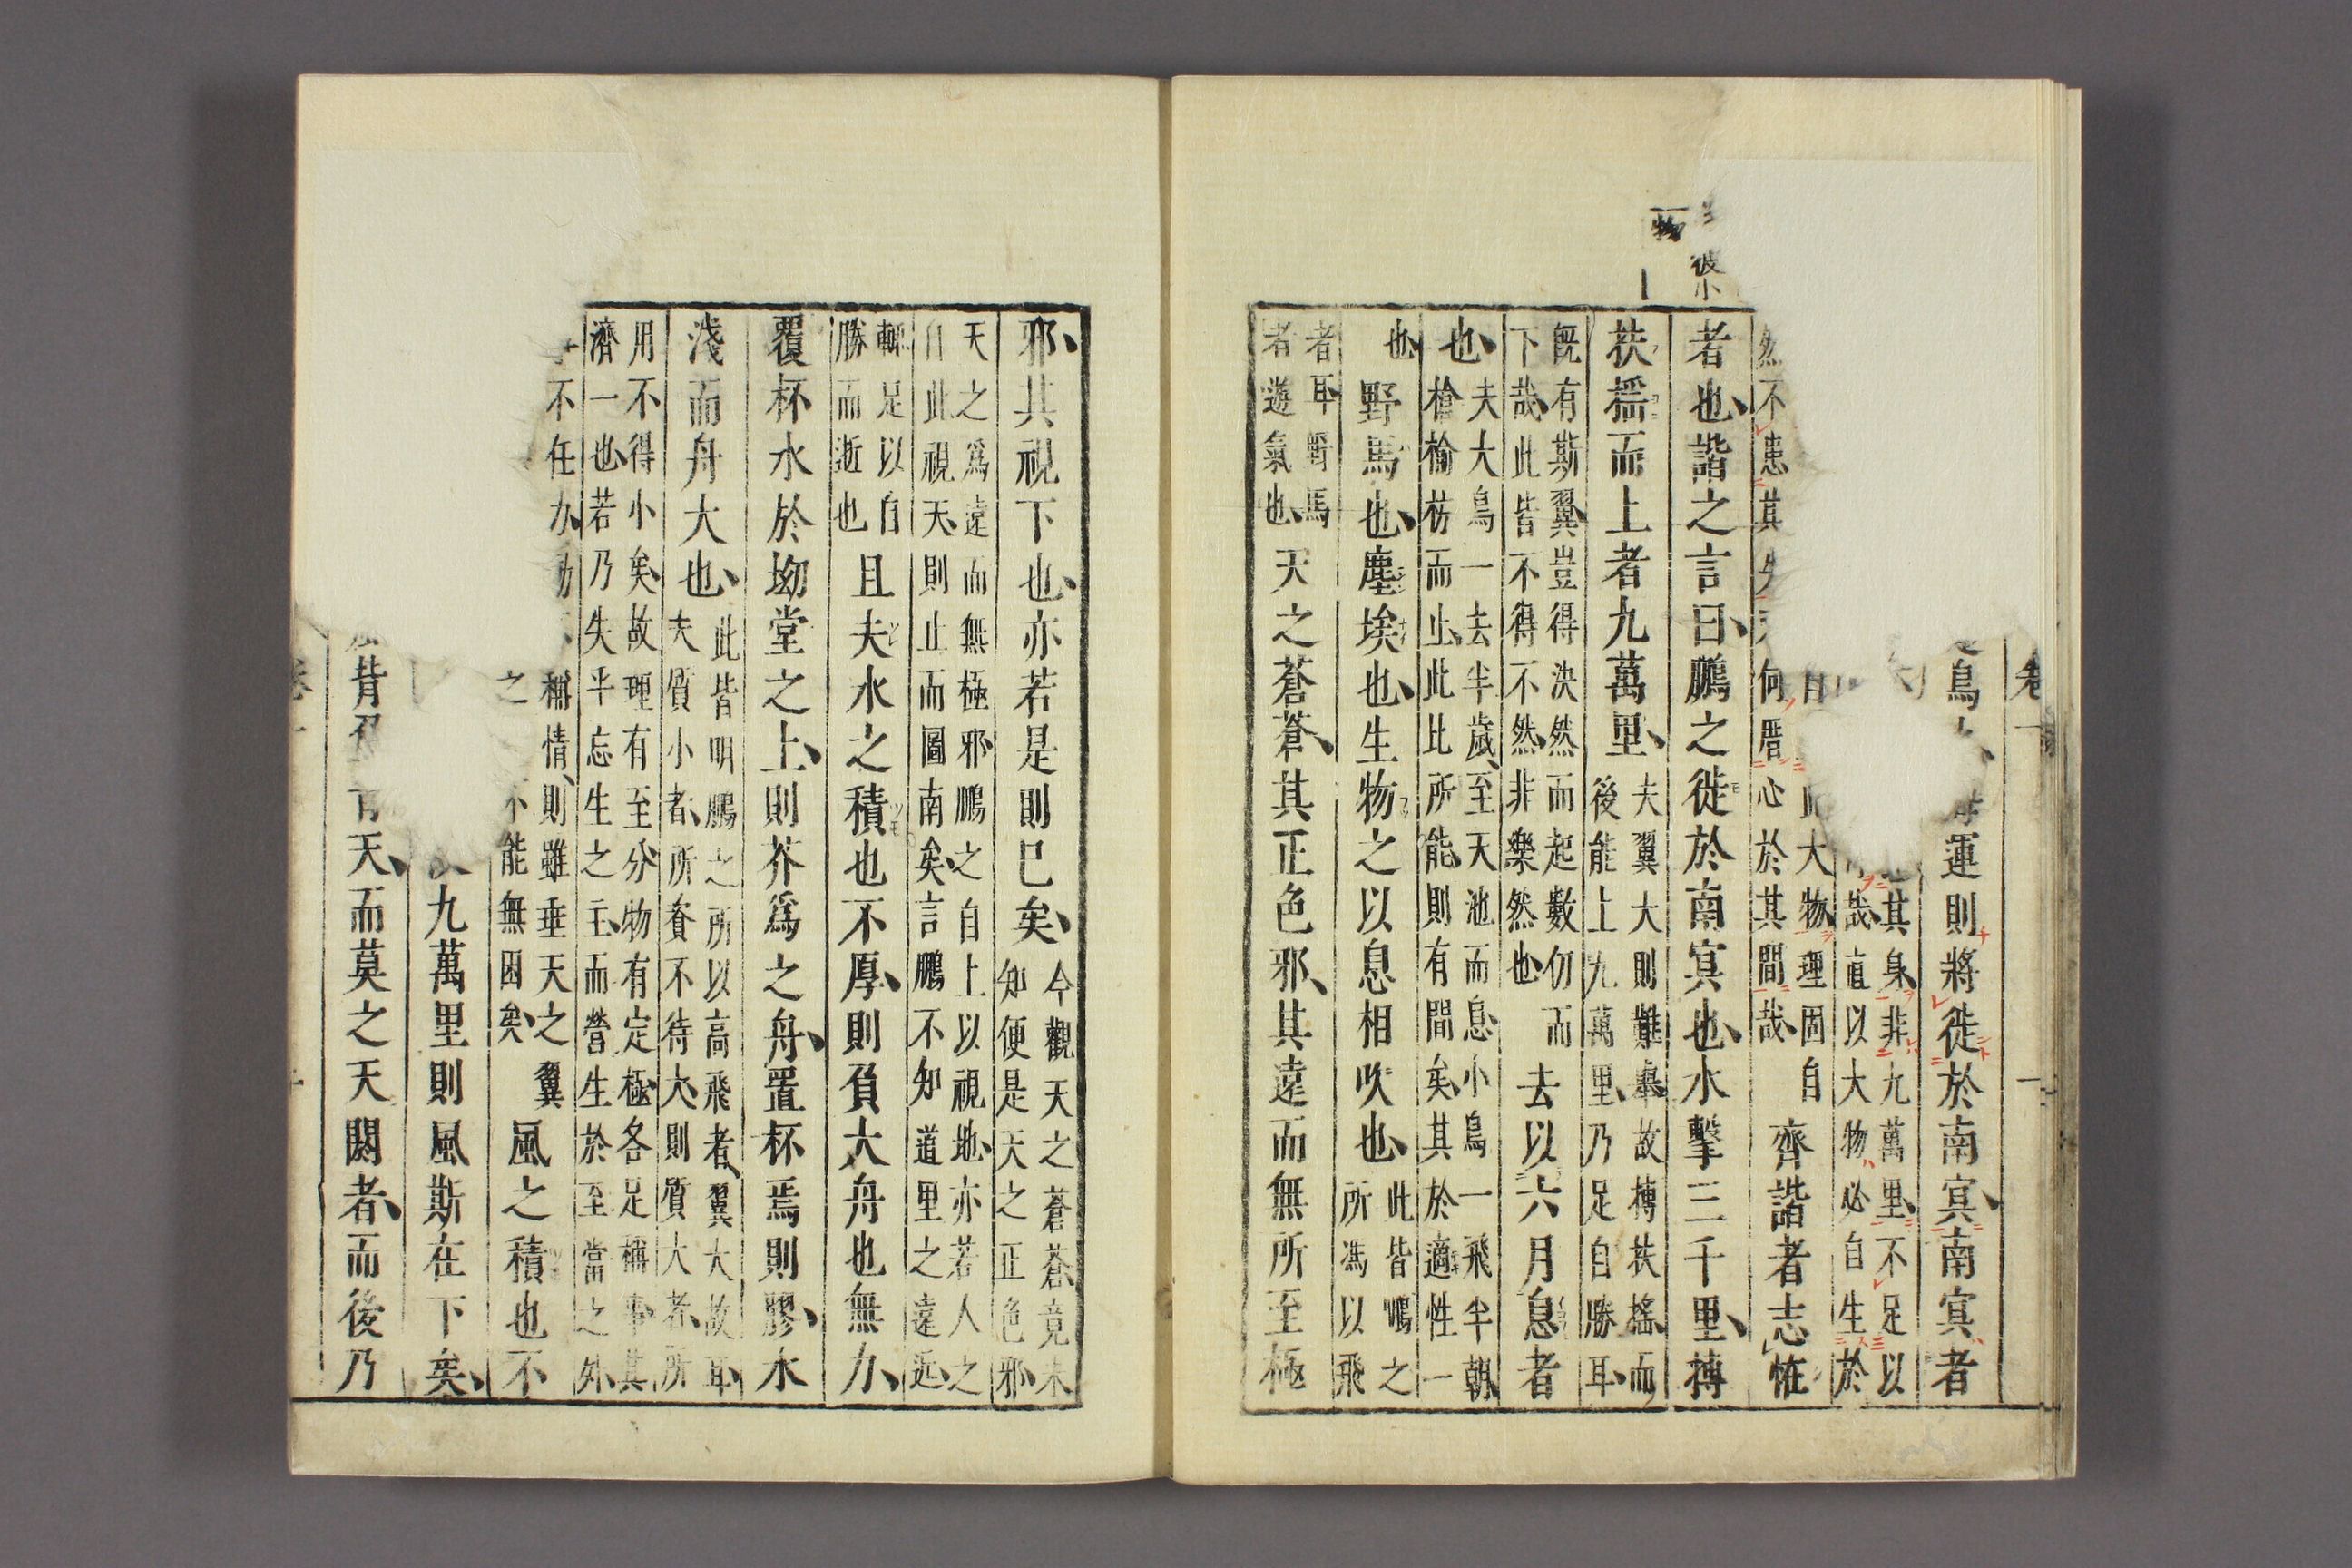 卷
鳥
運則將徙於南㝠南㝠者
其身非九萬里不足以
哉直以大物必自生於
大物理固自
然不患其
何厝心於其間哉
齊諧者志恠
者也諧之言曰鵬之徙於南㝠也水擊三千里搏
扶摇而上者九萬里
夫翼大則難舉故搏扶搖而
後能上九萬里乃足自勝耳
旣有斯翼豈得決然而起數仞而
下哉此皆不得不然非樂然也
去以六月息者
也
夫大鳥一去半歲至天池而息小鳥一飛半朝
槍榆枋而止此比所能則有間矣其於適性一
也
野馬也塵埃也生物之以息相吹也
此皆鵬之
所馮以飛
者耳野馬
者遊氣也
天之蒼蒼其正色邪其遠而無所至極
邪其視下也亦若是則已矣
今觀天之蒼蒼竟未
知便是天之正色邪
天之爲遠而無極邪鵬之自上以視地亦若人之
自此視天則止而圖南矣言鵬不知道里之遠近
輒足以自
勝而逝也
且夫水之積也不厚則負大舟也無力
覆杯水於坳堂之上則芥爲之舟置杯焉則膠水
淺而舟大也
此皆明鵬之所以高飛者翼大故耳
夫質小者所資不待大則質大者所
用不得小矣故理有至分物有定極各足稱事其
濟一也若乃失乎忘生之主而營生於至當之外
不任力
稱情則雖垂天之翼
之
能無困矣
風之積也不
九萬里則風斯在下矣
背
天而莫之夭閼者而後乃
彼小
物